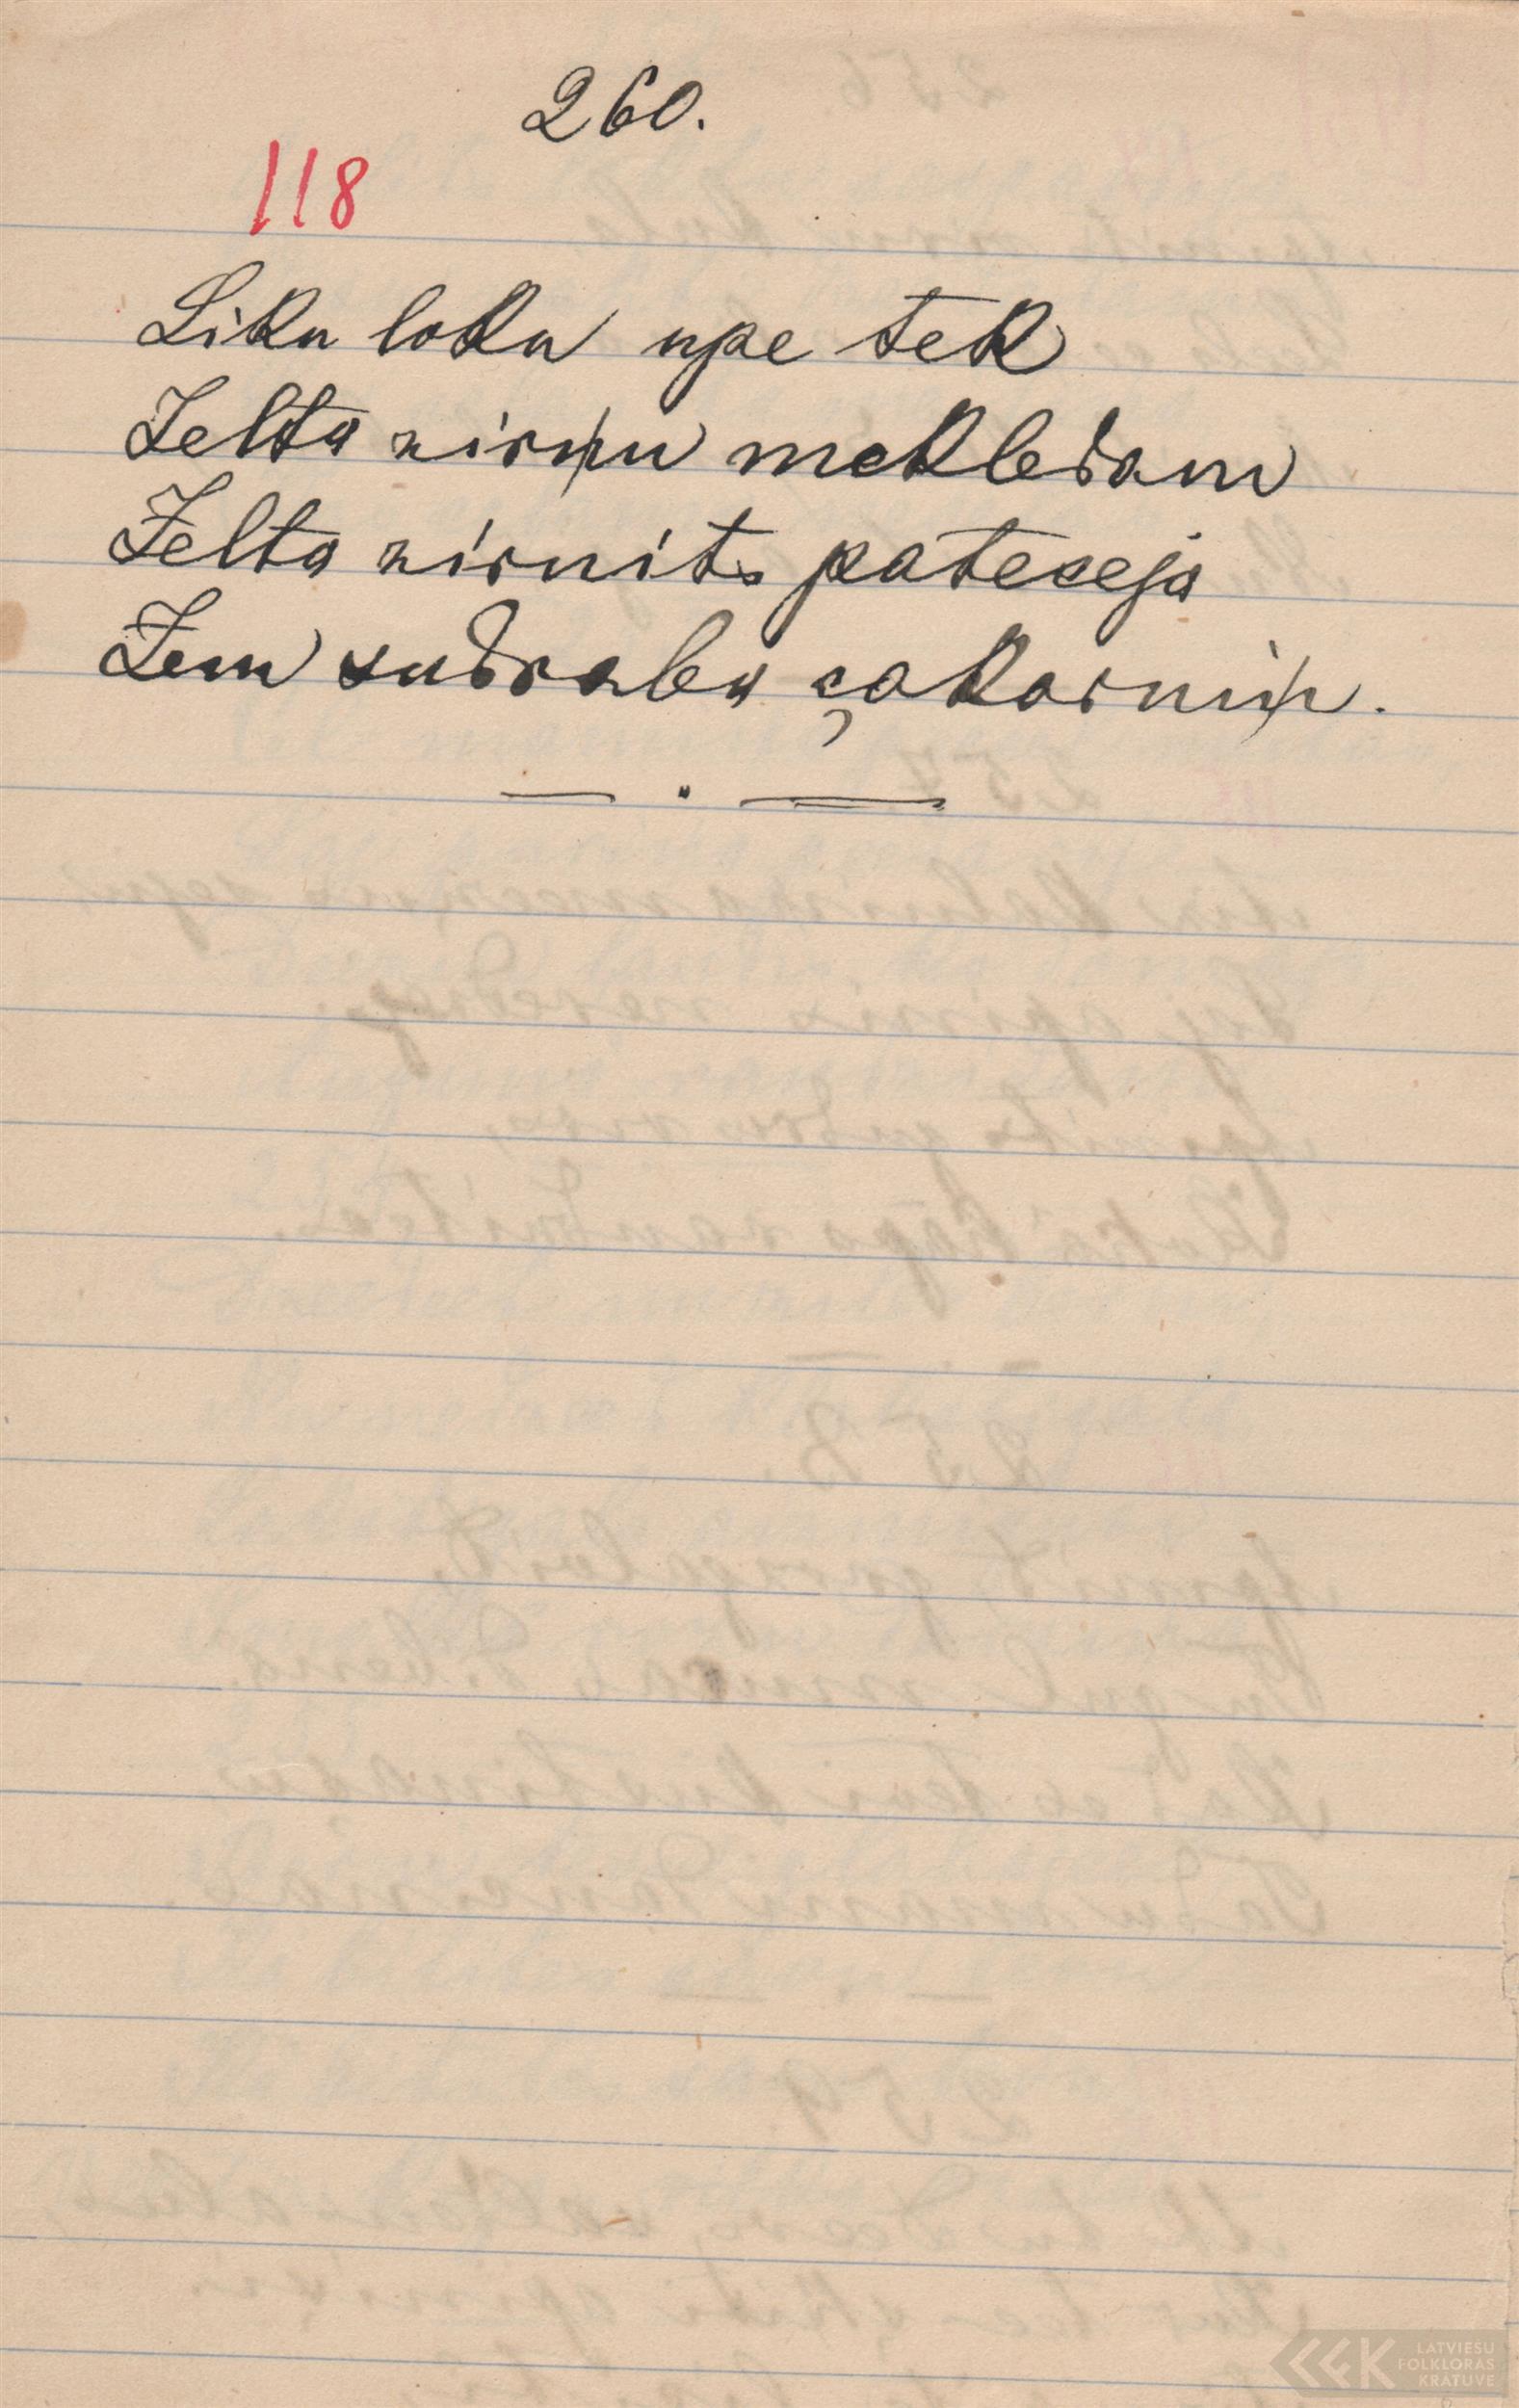 260.
118
Liku loku upe tek
Zelta zirņu mekledam
Zelta zirnits pateceja
Zem sudraba çakarniņ.
— . —
LATVIEŠU
FOLKLORAS
KRĀTUVE